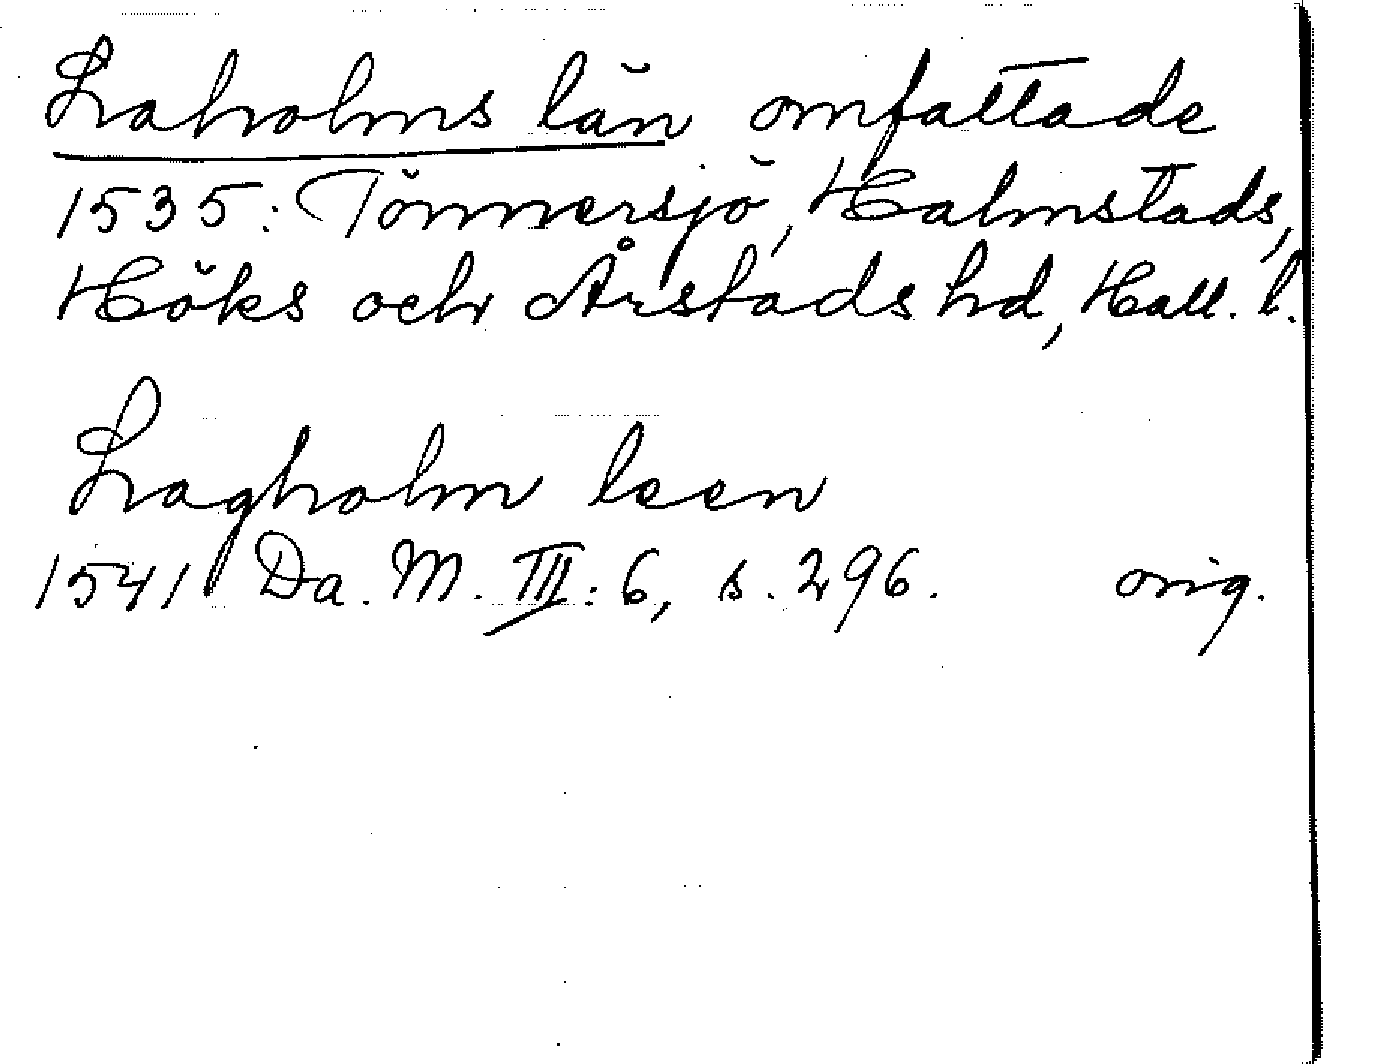 Laholms län omfattade
1535: Tönnersjö, Halmstads,
Höks och Årstads hd, Hall. l.
Lagholm leen
1541 Da. M. III: 6, s. 296. orig.